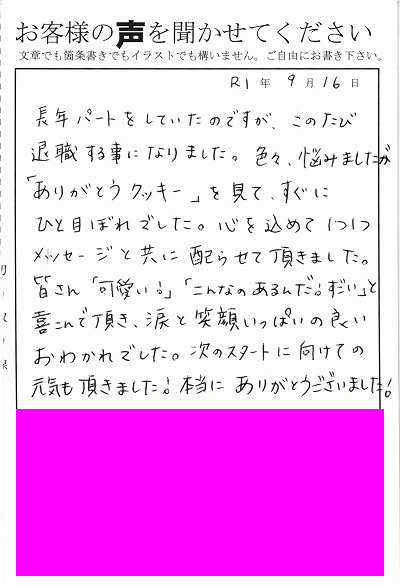 お客様の声を聞かせてください
文章でも箇条書きでもイラストでも構いません。ご自由にお書き下さい。
R1年 9月16日
長年パートをしていたのですが、このたび
退職する事になりました。色々、悩みましたが
「ありがとうクッキー」を見て、すぐに
ひと目ぼれでした。心を込めて1つ1つ
メッセージと共に配らせて頂きました。
皆さん「可愛い!」「こんなのあるんだ!すごい」と
喜こんで頂き、涙と笑顔いっぱいの良い
おわかれでした。次のスタートに向けての
元気も頂きました!本当にありがとうございました!